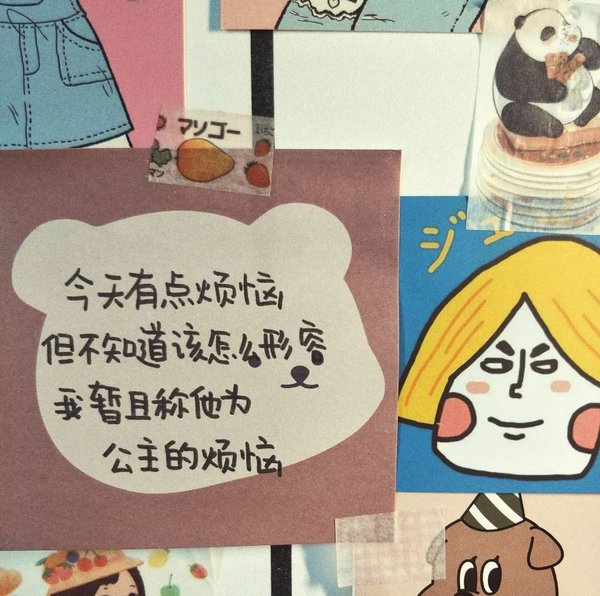 マンゴー
いちご
ジェ
今天有点烦恼
但不知道该怎么形容
我暂且称他为
公主的烦恼